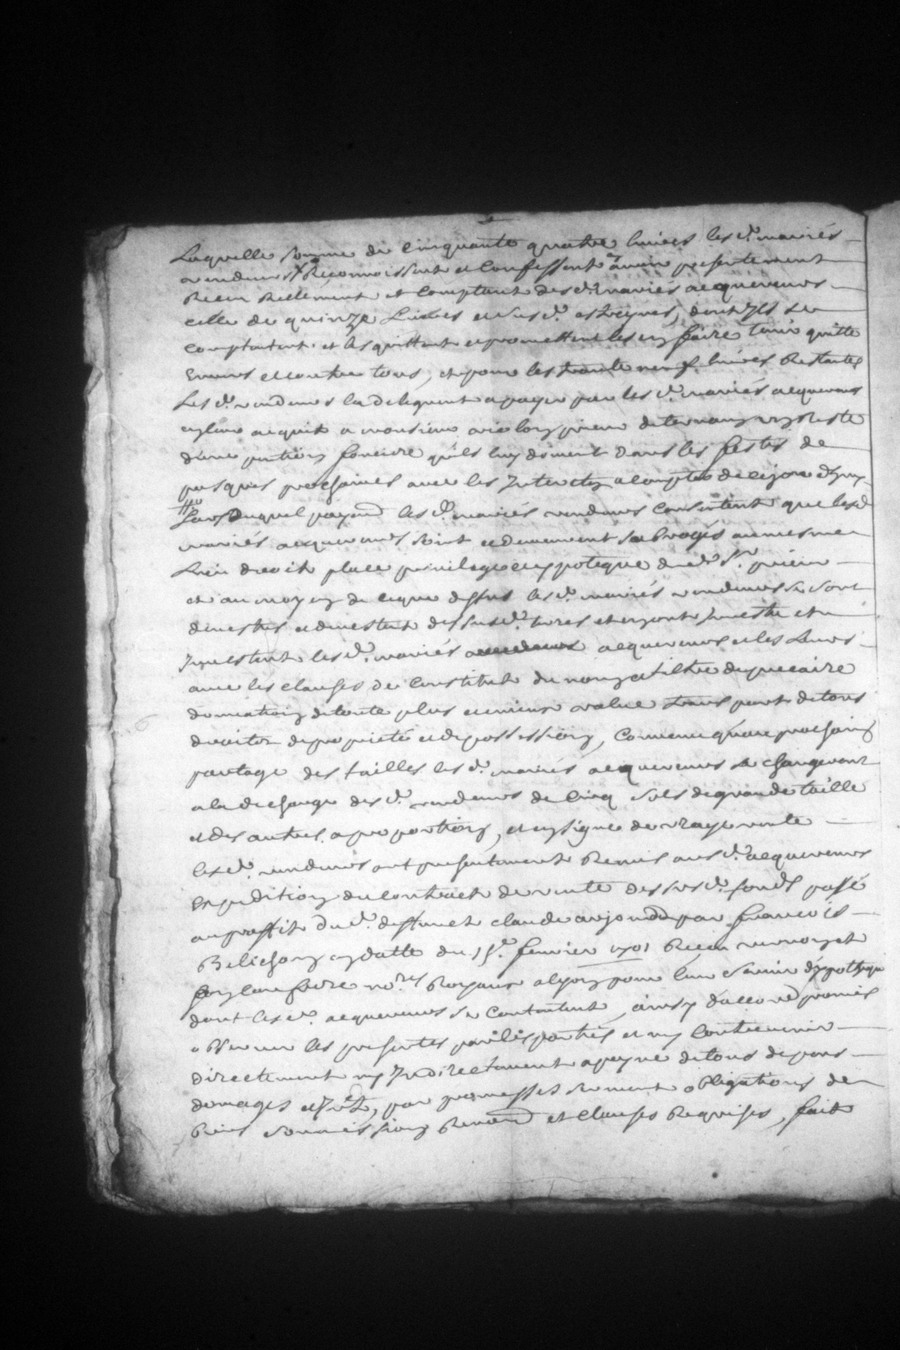 Laquelle somme de cinquante quatre livres les d. mariés
vendeurs Reconnoissent et Confessent avoir presentement
Receu Reellement et Comptant desd. mariés acquereurs
celle de quinze Livres et susd. estreynes, dont ils se
comptentent et les quittent et promettent les en faire tenir quitte
Envers et contre tous, et pour les trente neuf livres Restantes
Les d. vendeurs la deleguent a payer par les d. mariés acquereurs
a monsieur prieur de ternany Reste
d'une pention fonciere qu'ils luy doivent Dans les festes de
pasques prochaines avec les Interetz a Compter de cejourd'huy
Lors Duquel payem.t les d. mariés vendeurs Consentent que lesd.
mariés acquereurs soint et demeurent subrogés au mesme
Lieu droit place privilege et ypoteque dud. Sr. prieur
et au moyen de ce que dessus les d. mariés vendeurs se sont
devestus et devestent des susd. terres et en ont Investu et
Investent les d. mariés acquereurs et les Leurs
avec les clauses de Constitut du nom et tiltre de precaire
donnation de toute plus et mieux value transport de tous
droits de proprieté et de possession, Comme qu'au prochain
partage des tailles les d. mariés acquereurs se chargeront
a la decharge des d. vendeurs de Cinq sols de grande taille
et des autres a proportion, et en signe de vraye vente
les d. vendeurs ont presentement Remis aux d. acquereurs
Expedition du Contract de vente des susd. fonds passé
au proffit du d. deffunct claude par françois
Belichon en datte du 15e. fevrier 1701 Receu
no.res Royaux a Lyon pour leur servir d'ypotheque
dont les d. acquereurs se Contentent, ainsy d'accord promis
observer les presentes par les parties et n'y Contrevenir
directement ny Indirectement a peyne de tous depens
domages et Int., par promesses serment obligations de
biens soumissions Renon.on et Clauses Requises, fait